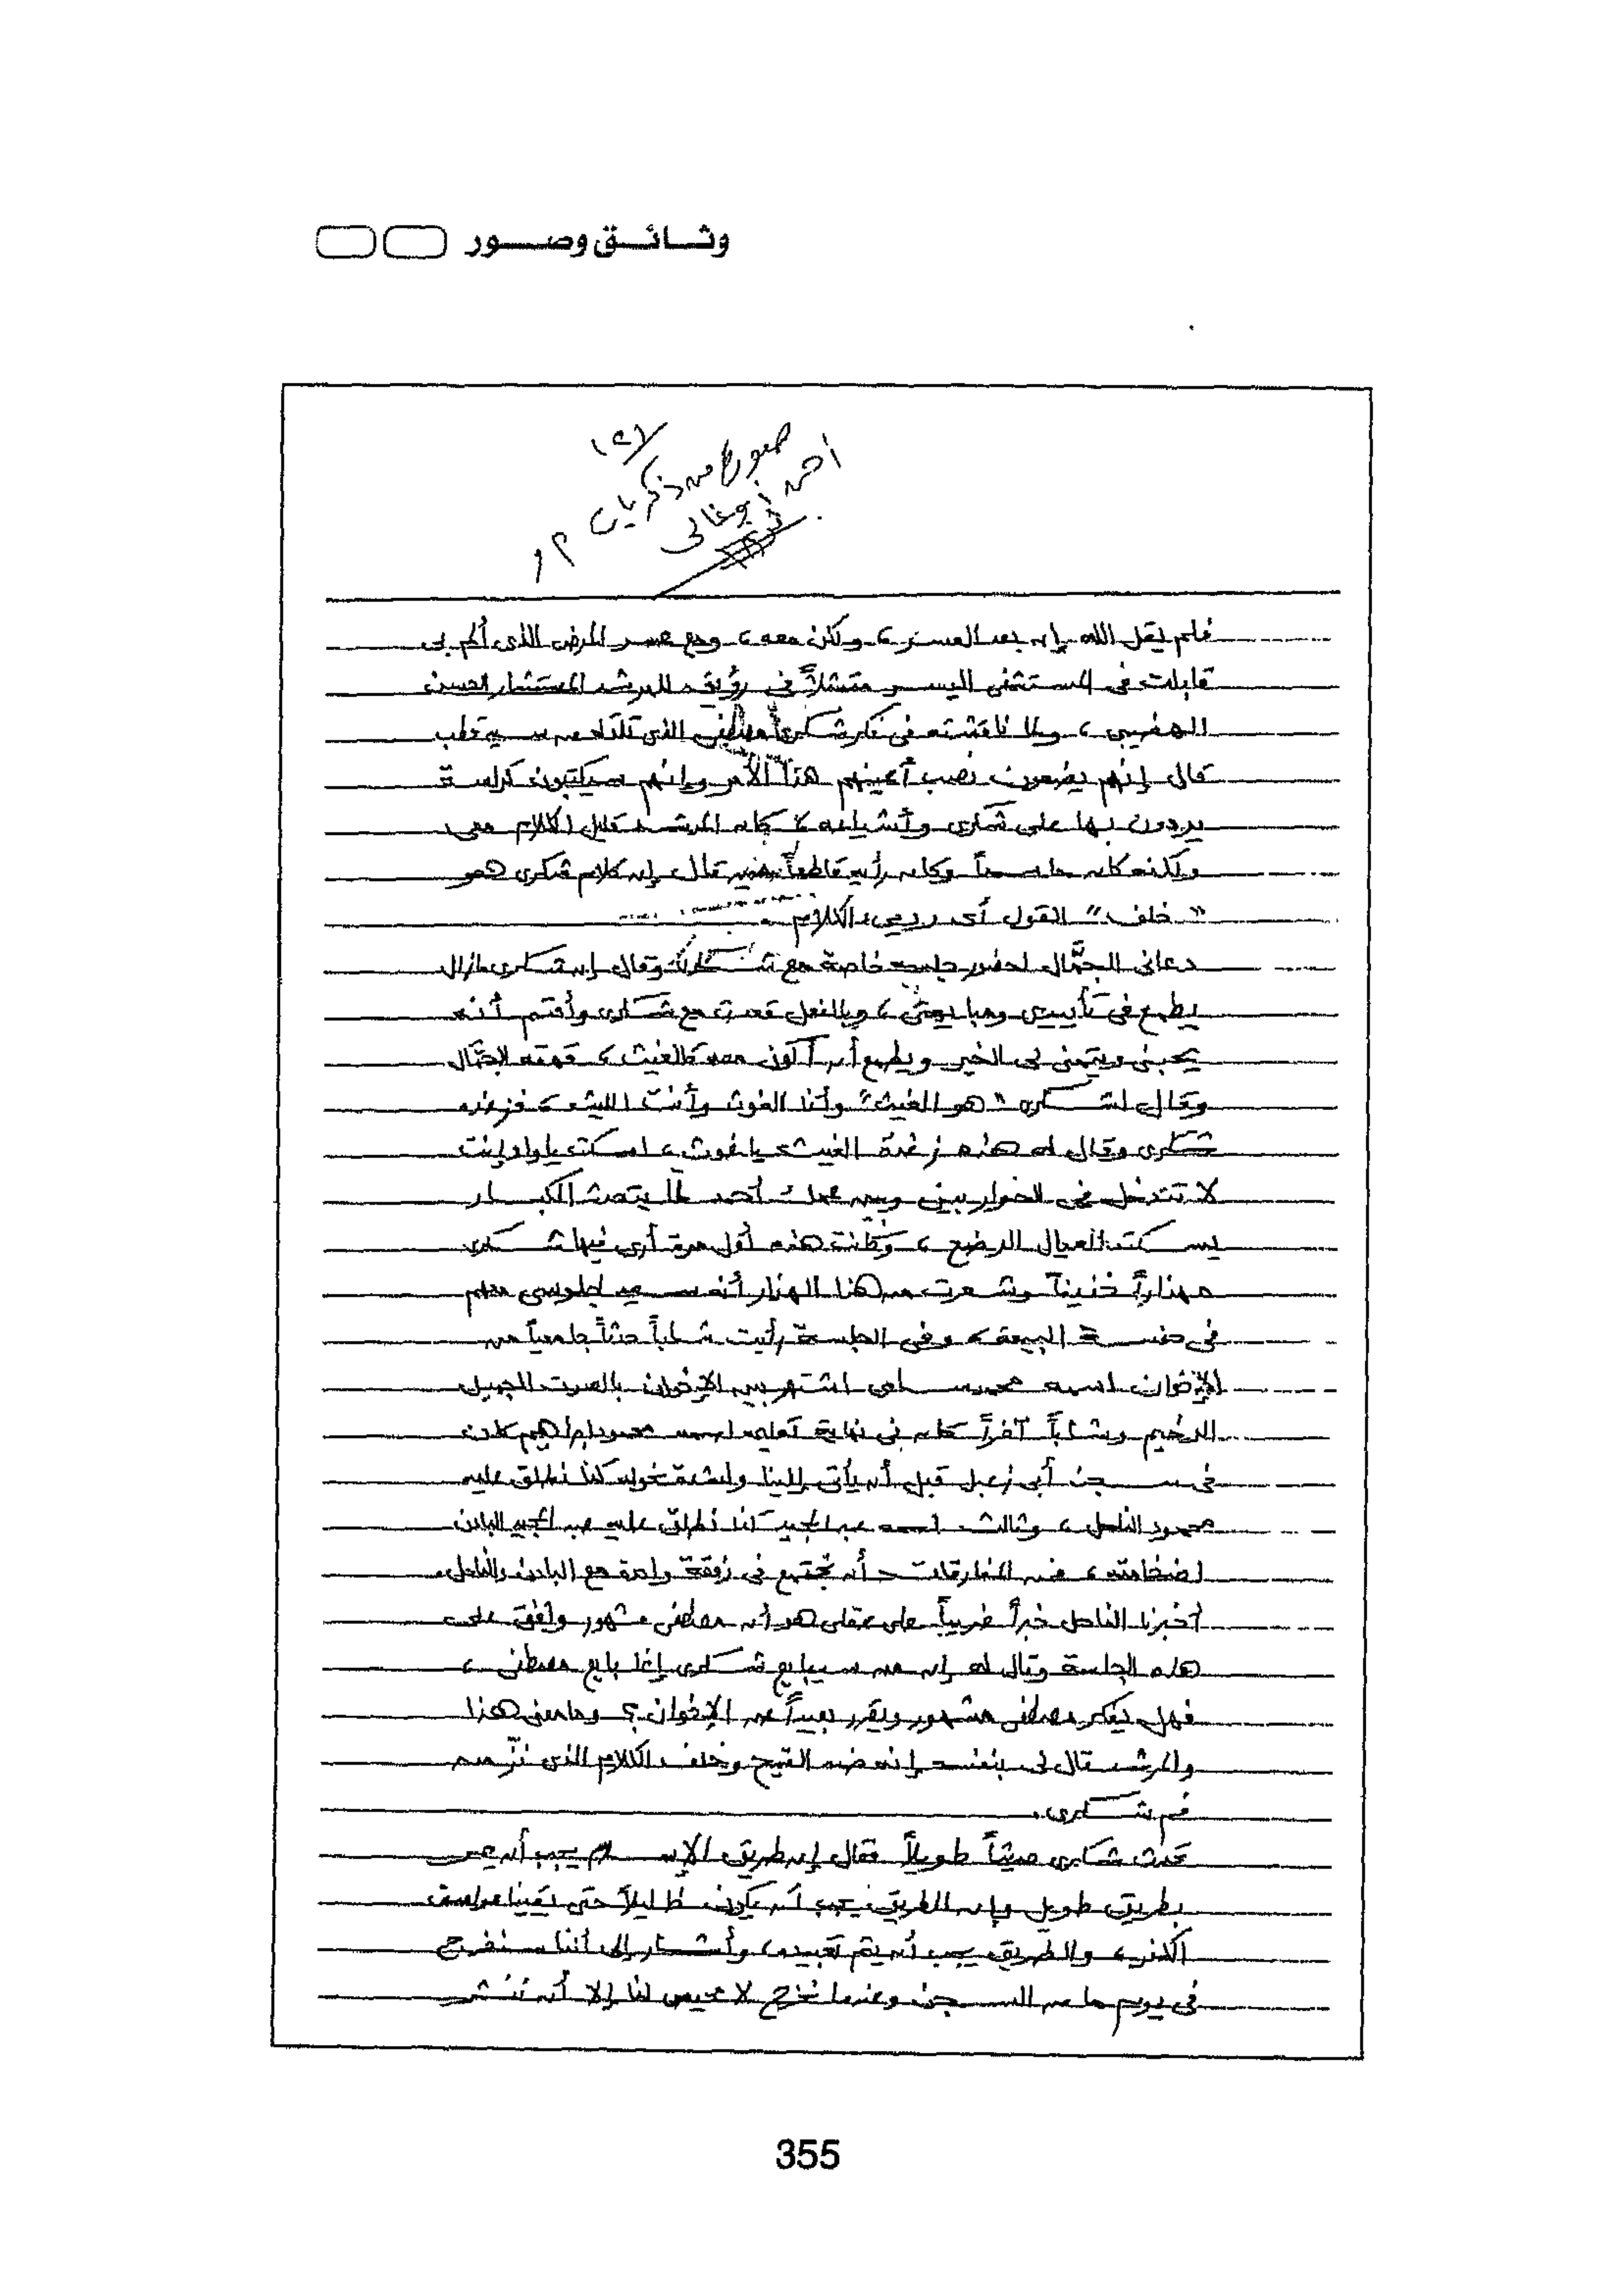 وثائق وصور
(٢)
صورة من ذكريات
أحمد أبو غالى
فلم يقل الله إن بعد العسر، ولكن معه، ومع عسر المرض الذى ألم بى
قابلت فى المستشفى اليسر متمثلاً فى رؤيتى للمرشد المستشار حسن
الهضيبى، ولما ناقشته فى فكر شكرى مصطفى الذى تلقاه من سيد قطب
قال إنهم يضعون نصب أعينهم هذا الأمر وإنهم سيكتبون كراسة
يردون بها على شكرى وأشياعه، كان المرشد قليل الكلام معى
ولكنه كان حاسماً وكان رأيه قاطعاً حين قال إن كلام شكرى هو
"خلف" القول أى ردىء الكلام
دعانى الجمَّال لحضور جلسة خاصة مع شكرى وقال إن شكرى مازال
يطمع فى تأييدى ومبايعتى، وبالفعل قعدت مع شكرى وأقسم أنه
يحبنى ويتمنى لى الخير ويطمع أن أكون معه كالغيث، فهتف الجمَّال
وقال لشكرى "هو الغيث" وأنا الغوث وأنت الليث، فزغده
شكرى وقال له هذه زغدة الغيث يا غوث، اسكت يا واد إنت
لا تتدخل فى الحوار بينى وبين عمك أحمد لما يتحدث الكبار
يسكت العيال الرضع، وكانت هذه أول مرة أرى فيها شكرى
مهذاراً خفيفاً وشعرت من هذا الهذار أنه سعيد لجلوسى معهم
فى خمسة البيعة، وفى الجلسة رأيت شاباً حدثاً جامعياً من
الإخوان اسمه محمد سامى اشتهر بين الإخوان بالصوت الجميل
الرخيم وشاباً آخراً كان فى نهاية تعليمه اسمه محمود ابراهيم كان
فى سجن أبى زعبل قبل أن يأتى إلينا ولشدة نحوله كنا نطلق عليه
محمود الناحل، وثالث اسمه عبد المجيد كنا نطلق عليه عبد المجيد البادن
لضخامته، فمن المفارقات أن تجتمع فى رفقة واحدة مع البادن والناحل.
أخبرنا الناحل خبراً غريباً على عقلى هو أن مصطفى مشهور وافق على
هذه الجلسة وقال له إن من سيبايع شكرى إنما بايع مصطفى،
فهل يفكر مصطفى مشهور ويقرر بعيداً عن الإخوان؟ وما معنى هذا
والمرشد قال لى بنفسه إنه ضد القبيح وخلف الكلام الذى
فم شكرى.
تحدث شكرى حديثاً طويلاً فقال إن طريق الإسلام يجب أن يمر
بطريق طويل وإن الطريق يجب أن يكون ظليلاً حتى يقينا عواصف
الكفر، والطريق يجب أن يتم تعبيده، وأشار إلى أننا سنخرج
فى يوم ما من السجن وعندما نخرج لا محيص لنا إلا أن ننشر
355